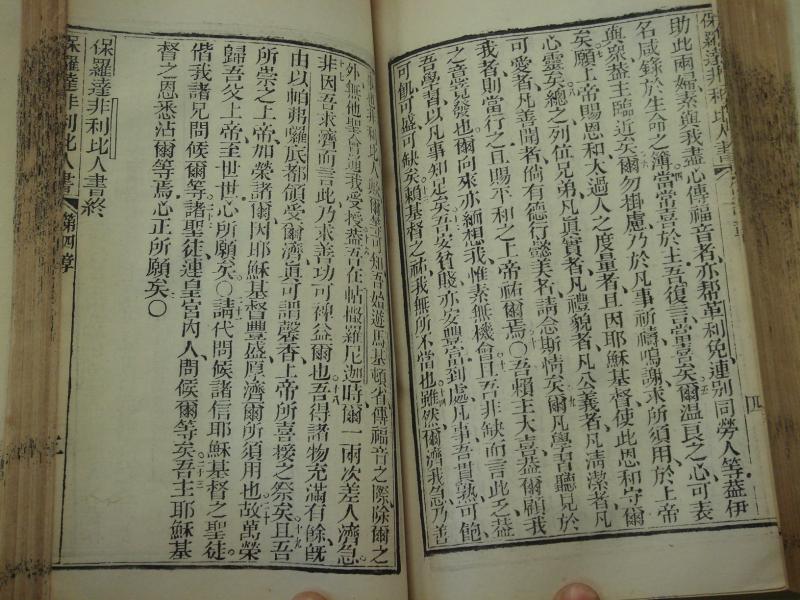 保羅達非利比人書
四
助此兩婦素與我盡心傳福音者亦帮革利免連別同勞人等葢伊
名咸錄於生命之簿當常喜於主吾復言當喜矣爾温良之心可表
與眾葢主臨近矣爾勿掛慮乃於凡事祈禱嗚謝求所須用於上帝
矣願上帝賜恩和太過人之度量者且因耶穌基督使此恩和守爾
心靈矣總之列位兄弟凡眞實者凡禮貌者凡公義者凡清潔者凡
可愛者凡善聞者倘有德行懿美者請念斯情矣爾凡學習聽見於
我者則當行之且賜平和之上帝祐爾焉○吾賴主大喜葢爾顧我
之善覺發也爾向來亦緬想我惟素無機會且吾非缺而言此之葢
吾學自以凡事知足矣吾安貧賤亦安豐富到處凡事吾貫熟可飽
可飢可盛可缺矣賴基督之神我無所不當也雖然爾濟我急乃善
可知吾始遊馬基頓省傳福音之際除爾之
外無他聖會迎我受授葢吾在帖撒羅尼迦時爾一兩次差人濟急
非因吾求濟而言此乃求善功可裨益爾也吾得諸物充滿有餘旣
由以帕弗囉底都領受爾濟眞可謂馨香上帝所喜接之祭矣且吾
所崇之上帝加榮諸爾因耶穌基督豐盛厚濟爾所須用也故萬榮
歸吾父上帝至世世心所願矣○請代問候諸信耶穌基督之聖徒
偕我諸兄問候爾等諸聖徒連皇宮內人問候爾等矣吾主耶穌基
督之恩悉沾爾等焉心正所願矣○
保羅達非利比人書終
保羅達非利比人書
第四章